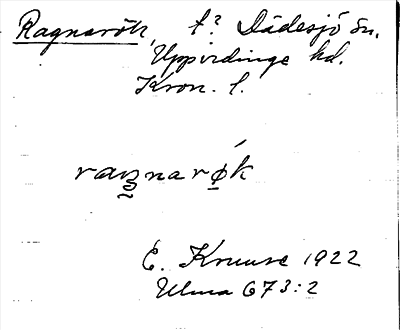 Ragnarök, t? Dädesjö sn.
Uppvidinge hd.
Kron. l.
raŋnarǿ̱k
E. Kruuse 1922
Ulma 673:2